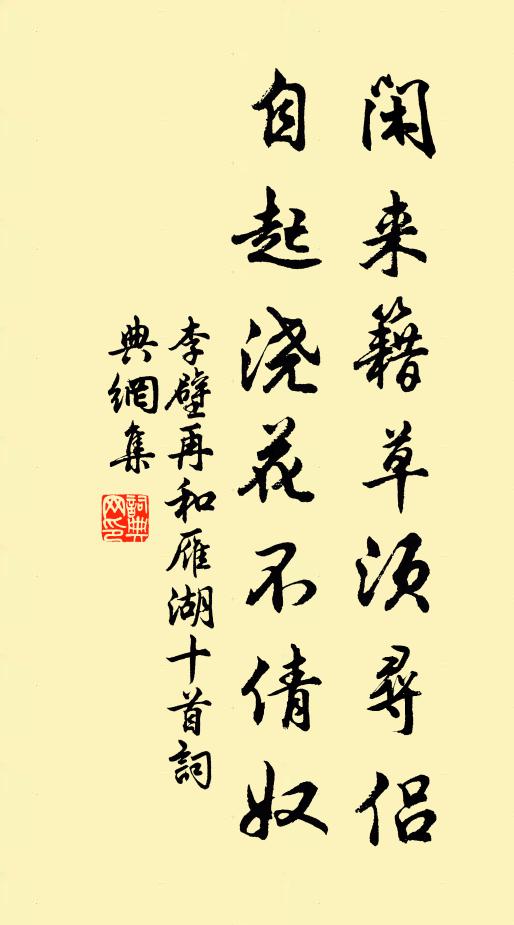 闲来籍草须寻侣
自起浇花不倩奴
李壁再和雁湖十首詞
典網集
詞典网印